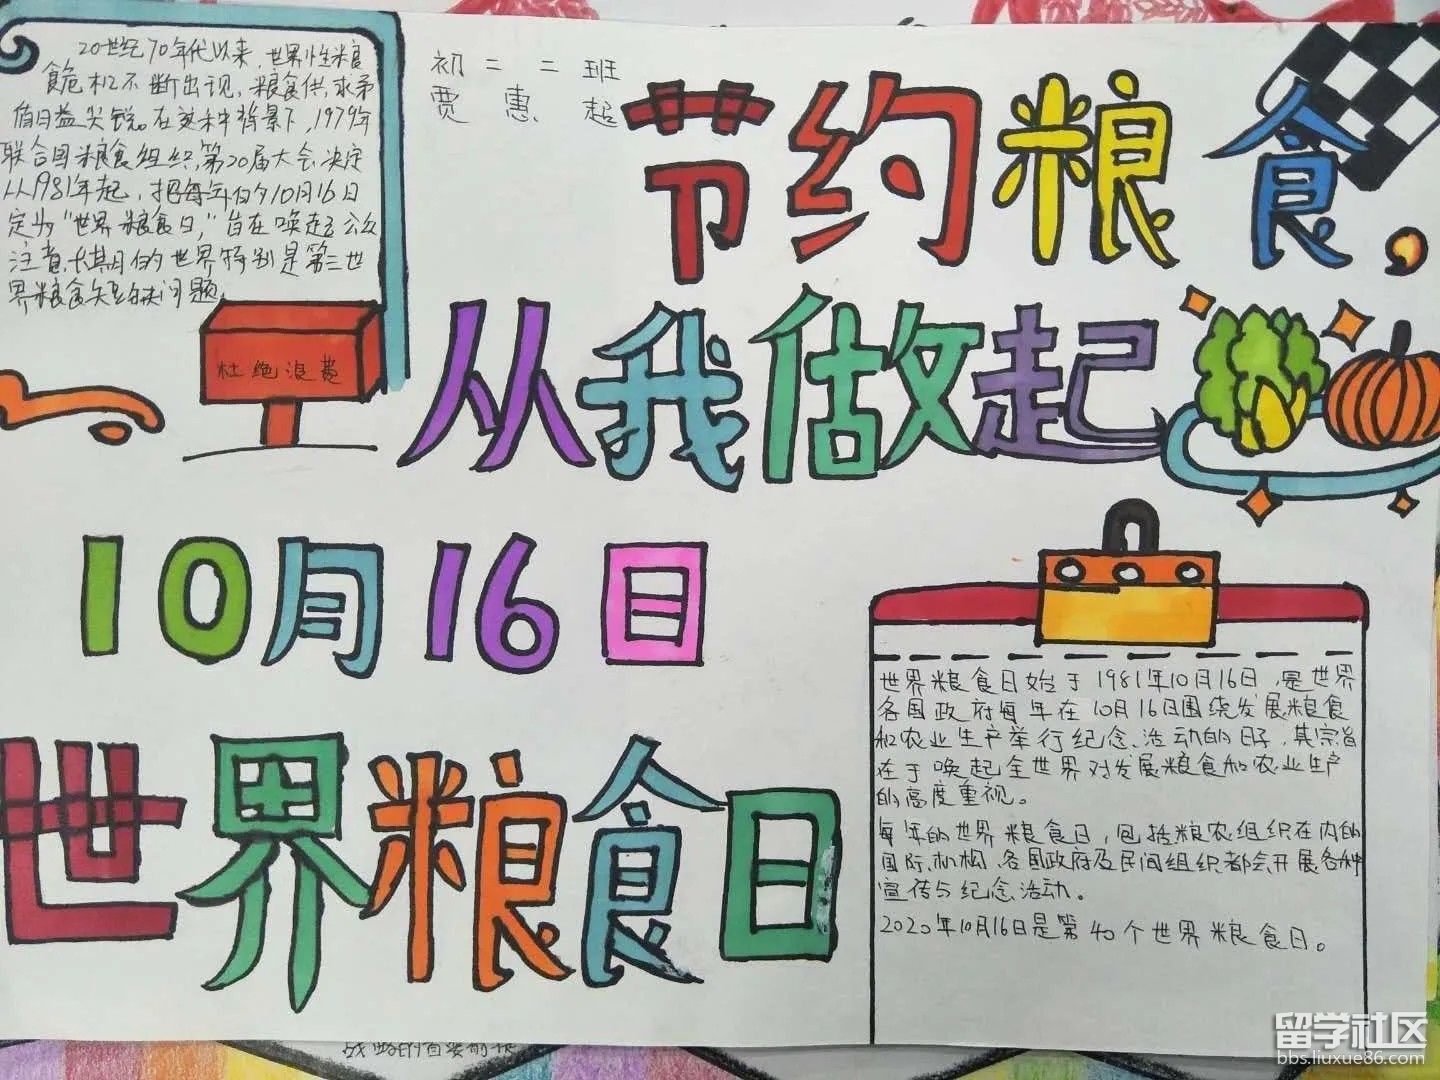 20世纪70年代以来,世界性粮
食危机不断出现,粮食供求矛
盾日益尖锐。在这种背景下,1979年
联合国粮食组织,第20届大会决定
从1981年起,把每年的10月16日
定为"世界粮食日,"旨在唤起公众
注意,长期的世界特别是第三世
界粮食短缺问题。
初二二班
贾惠起
节约粮食,
从我做起
杜绝浪费
10月16日
世界粮食日
世界粮食日始于1981年10月16日,是世界
各国政府每年在10月16日围绕发展粮食
和农业生产举行纪念、活动的日子,其宗旨
在于唤起全世界对发展粮食和农业生产
的高度重视。
每年的世界粮食日,包括粮农组织在内的
国际机构、各国政府及民间组织都会开展各种
宣传与纪念活动。
2020年10月16日是第40个世界粮食日。
留学社区
bbs.liuxue86.com